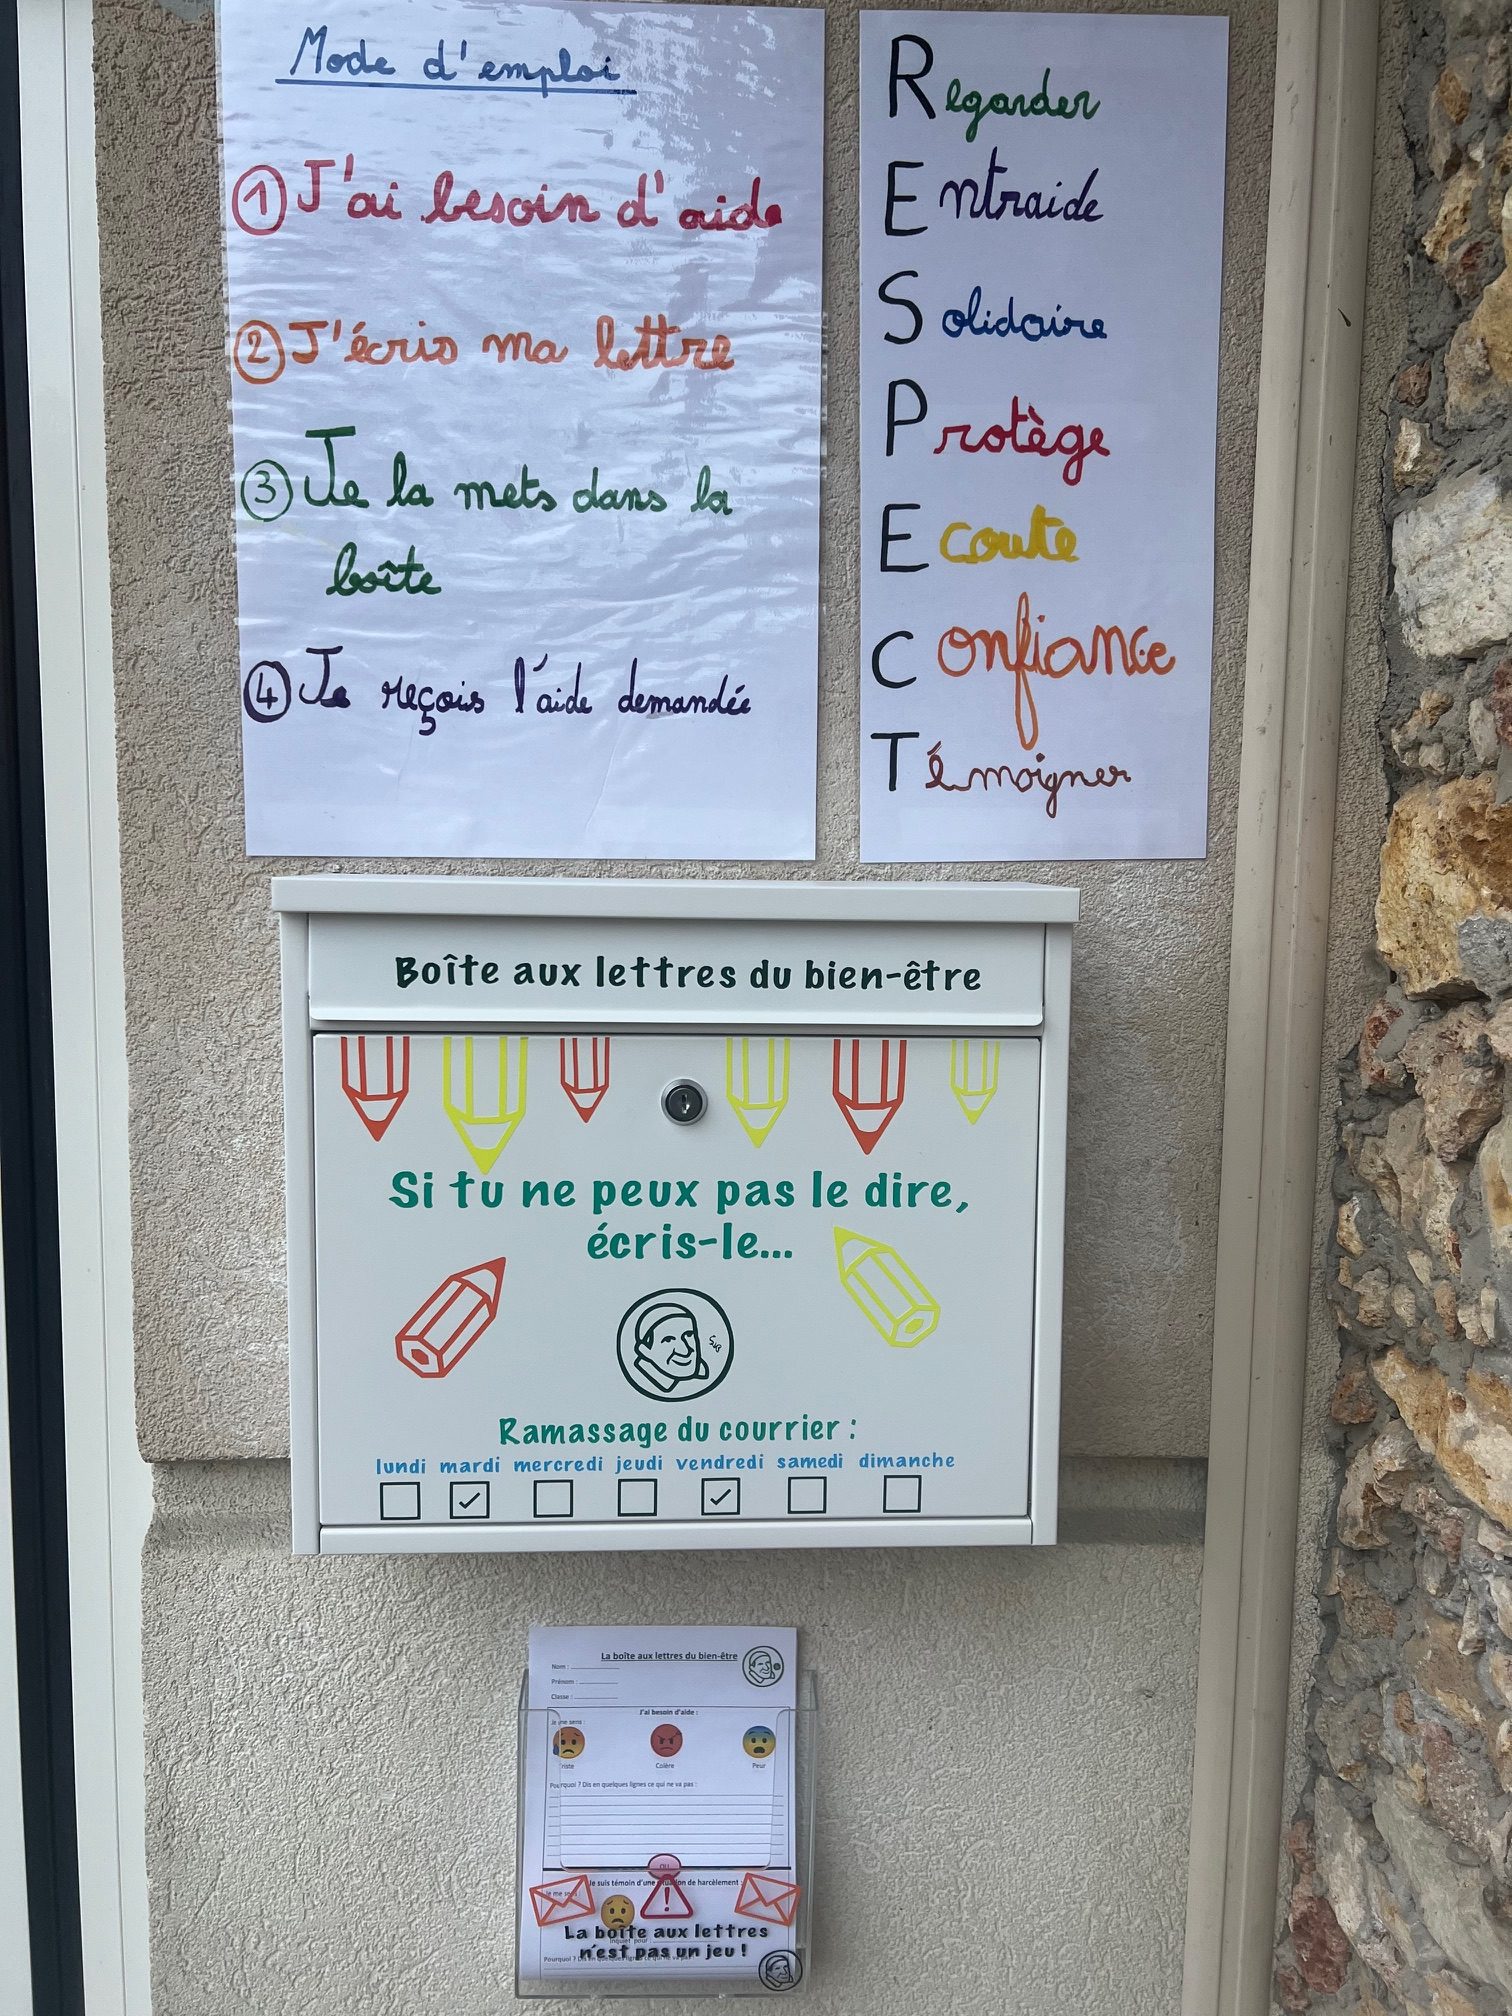 Mode d'emploi
① J'ai besoin d'aide
② J'écris ma lettre
③ Je la mets dans la
boîte
④ Je reçois l'aide demandée
Regarder
Entraide
Solidaire
Protège
Ecoute
Confiance
Témoigner
Boîte aux lettres du bien-être
Si tu ne peux pas le dire,
écris-le...
Ramassage du courrier :
lundi mardi mercredi jeudi vendredi samedi dimanche
La boîte aux lettres du bien-être
Nom :
Prénom :
Classe :
J'ai besoin d'aide :
Je me sens :
Colère Peur
Pourquoi ? Dis en quelques lignes ce qui ne va pas :
OU
Je suis témoin d'une situation de harcèlement :
La boîte aux lettres
n'est pas un jeu !